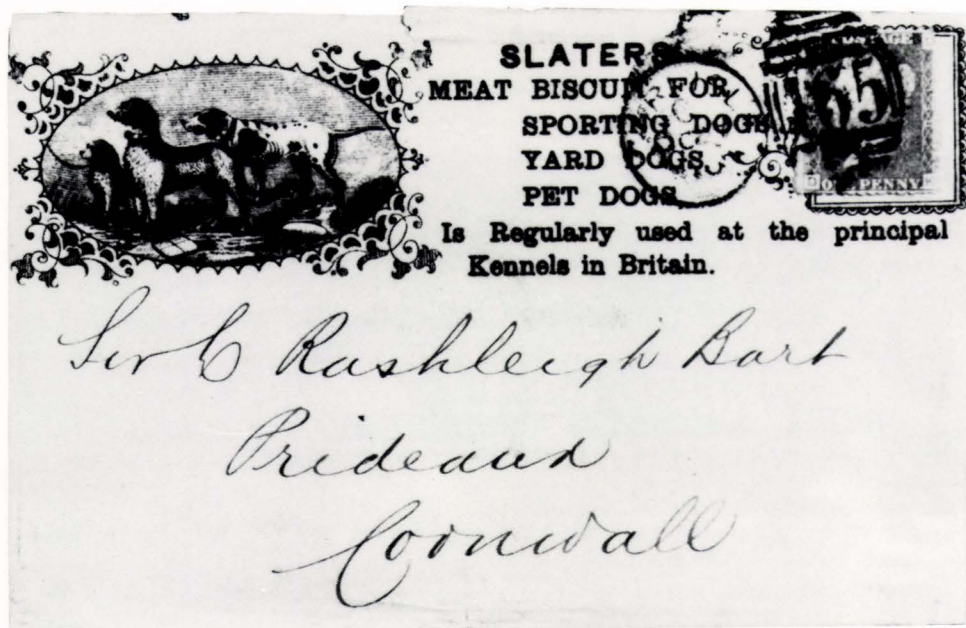 SLATERS
MEAT BISCUIT FOR
SPORTING DOGS
YARD DOGS
PET DOGS
Is Regularly used at the principal
Kennels in Britain.
POSTAGE
ONE PENNY
Sir C Rashleigh Bart
Prideaux
Cornwall